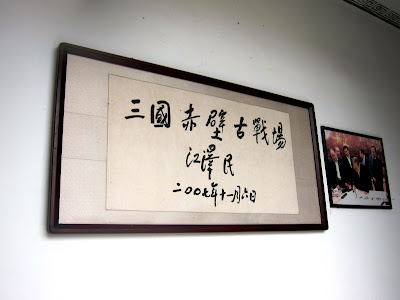 三國赤壁古戰場
江澤民
二〇〇七年十一月六日